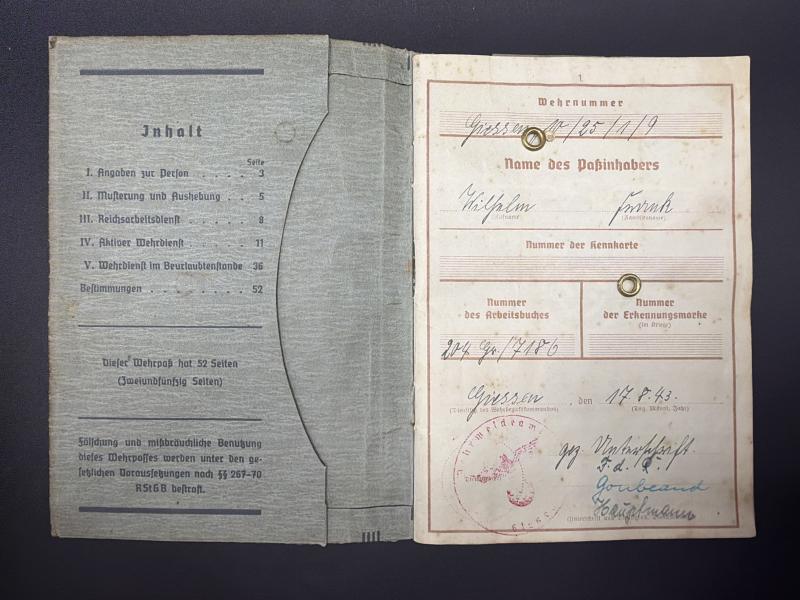 Inhalt
Seite
I. Angaben zur Person . . . . 3
II. Musterung und Aushebung . . 5
III. Reichsarbeitsdienst . . . . 8
IV. Aktiver Wehrdienst . . . . 11
V. Wehrdienst im Beurlaubtenstande 36
Bestimmungen . . . . . . . . 52
Dieser Wehrpaß hat 52 Seiten
(Zweiundfünfzig Seiten)
Fälschung und mißbräuchliche Benutzung
dieses Wehrpasses werden unter den ge-
setzlichen Voraussetzungen nach §§ 267-70
RStGB bestraft.
1
Wehrnummer
Giessen 10/25/1/9
Name des Paßinhabers
Wilhelm Frank
(Rufname) (Familienname)
Nummer der Kennkarte
Nummer
des Arbeitsbuches
Nummer
der Erkennungsmarke
(im Kriege)
204 Gr/7186
Giessen, den 17.8.43.
(Dienstsitz des Wehrbezirkskommandos) (Tag, Monat, Jahr)
gez. Unterschrift.
F. d. R.
Hauptmann